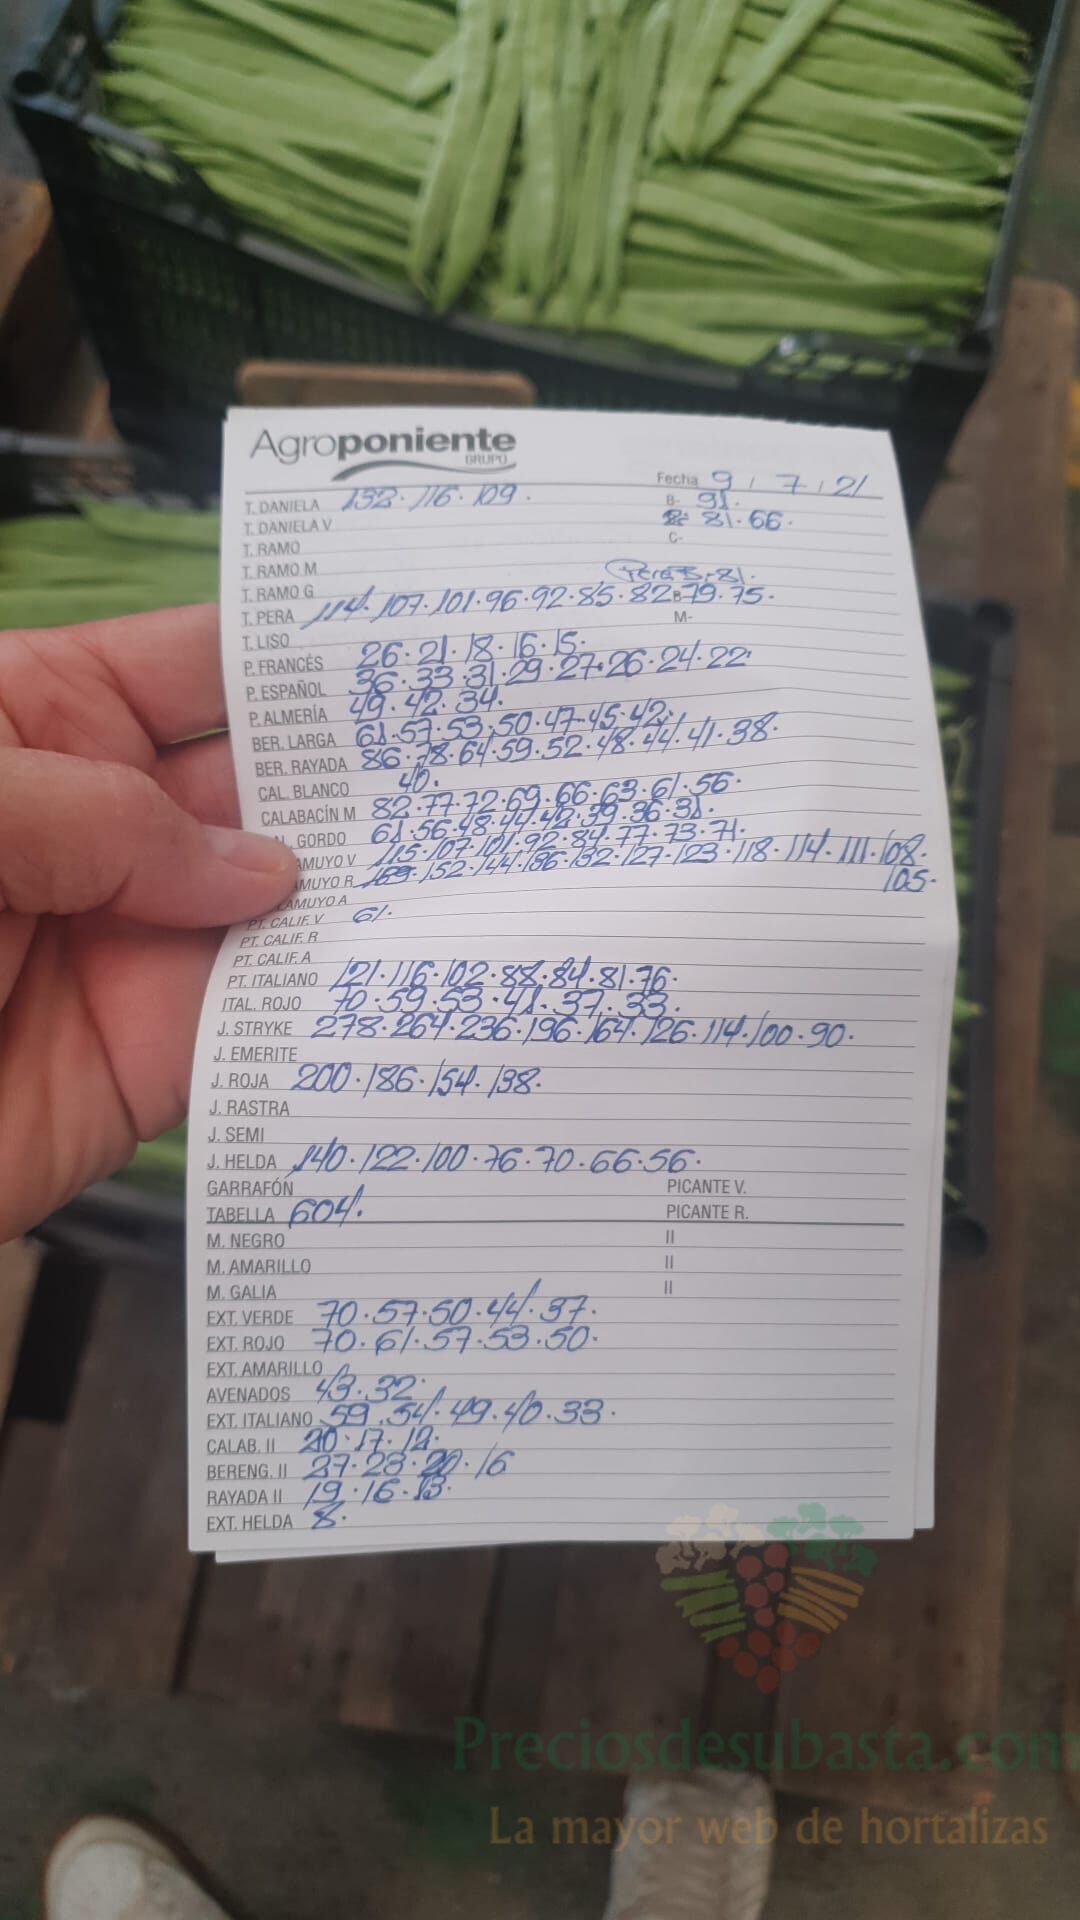 Agroponiente
GRUPO
Fecha 9 / 7 / 21
T. DANIELA 132. 116. 109. B- 91.
T. DANIELA V 81. 66.
T. RAMO C-
T. RAMO M
T. RAMO G Pera B- 81.
T. PERA 114. 107. 101. 96. 92. 85. 82. B- 79. 75.
T. LISO M-
P. FRANCÉS 26. 21. 18. 16. 15.
P. ESPAÑOL 36. 33. 31. 29. 27. 26. 24. 22.
P. ALMERÍA 49. 42. 34.
BER. LARGA 61. 57. 53. 50. 47. 45. 42.
BER. RAYADA 86. 78. 64. 59. 52. 48. 44. 41. 38.
CAL. BLANCO 40.
CALABACÍN M 82. 77. 72. 69. 66. 63. 61. 56.
GORDO 61. 56. 48. 44. 42. 39. 36. 31.
AMUYO V 115. 107. 101. 92. 84. 77. 73. 71.
AMUYO R 152. 144. 136. 132. 127. 123. 118. 114. 111. 108.
105.
LAMUYO A
PT. CALIF. V 61.
PT. CALIF. R
PT. CALIF. A
PT. ITALIANO 121. 116. 102. 88. 84. 81. 76.
ITAL. ROJO 70. 59. 53. 41. 37. 33.
J. STRYKE 278. 264. 236. 196. 164. 126. 114. 100. 90.
J. EMERITE
J. ROJA 200. 186. 154. 138.
J. RASTRA
J. SEMI
J. HELDA 140. 122. 100. 76. 70. 66. 56.
GARRAFÓN PICANTE V.
TABELLA 604. PICANTE R.
M. NEGRO II
M. AMARILLO II
M. GALIA II
EXT. VERDE 70. 57. 50. 44. 37.
EXT. ROJO 70. 61. 57. 53. 50.
EXT. AMARILLO
AVENADOS 43. 32.
EXT. ITALIANO 59. 54. 49. 40. 33.
CALAB. II 20. 17. 12.
BERENG. II 27. 23. 20. 16
RAYADA II 19. 16. 13.
EXT. HELDA 8.
Preciosdesubasta.com
La mayor web de hortalizas